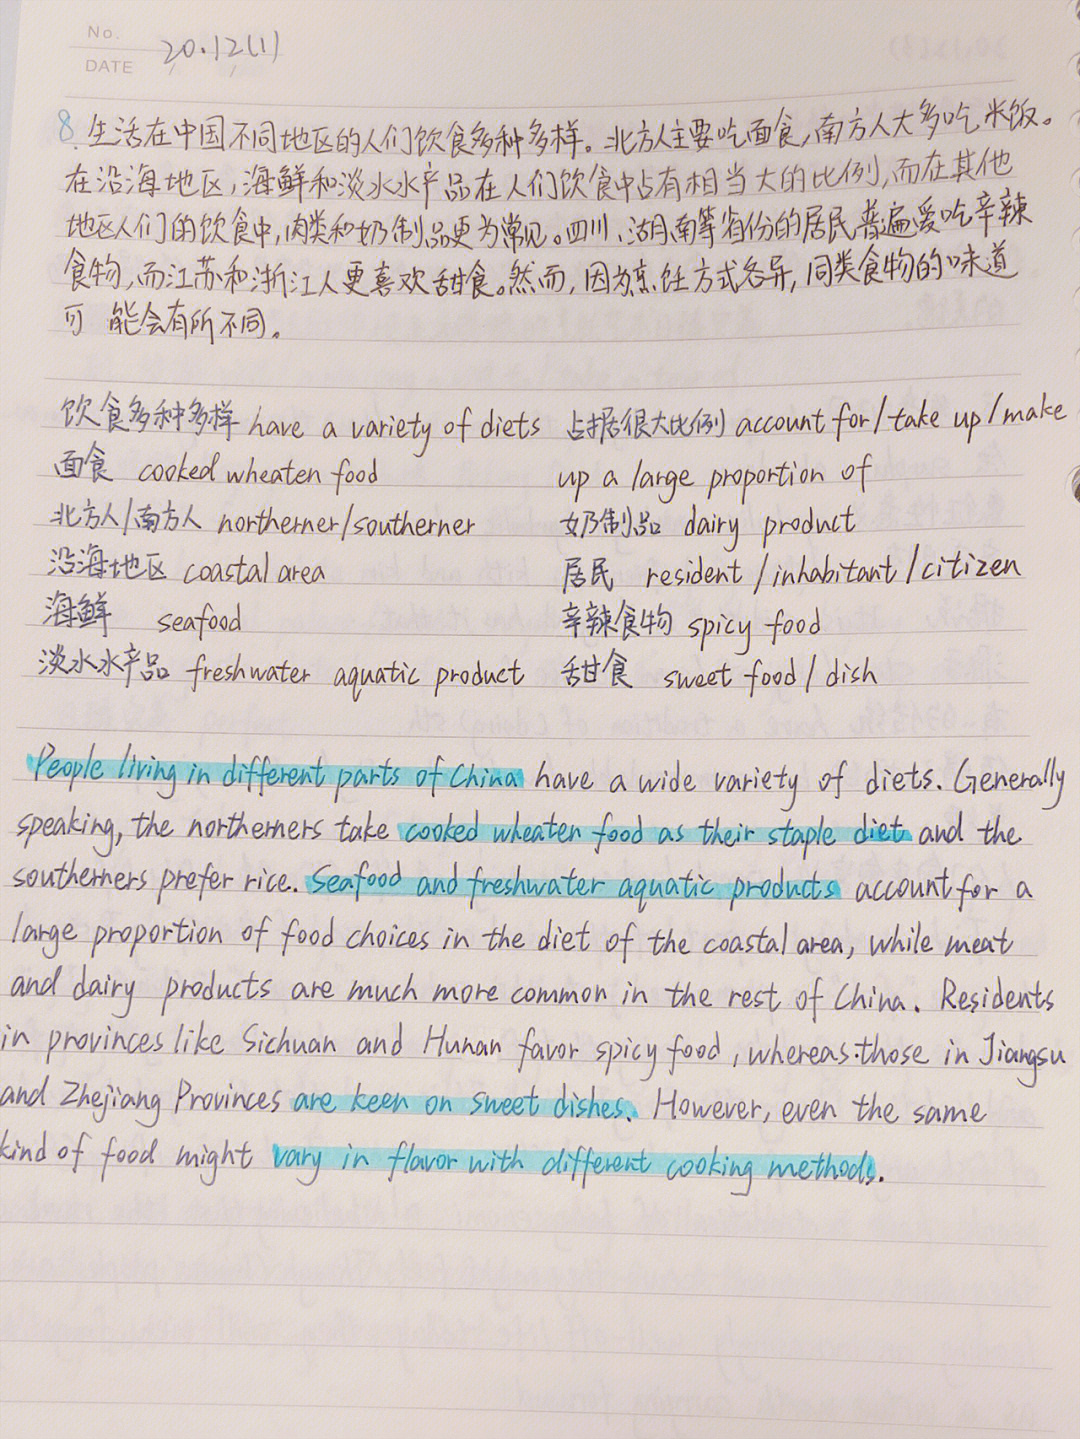 No.
DATE
20.12(1)
8. 生活在中国不同地区的人们饮食多种多样。北方人主要吃面食,南方人大多吃米饭。
在沿海地区,海鲜和淡水水产品在人们饮食中占有相当大的比例,而在其他
地区人们的饮食中,肉类和奶制品更为常见。四川、湖南等省份的居民普遍爱吃辛辣
食物,而江苏和浙江人更喜欢甜食。然而,因为烹饪方式各异,同类食物的味道
可能会有所不同。
饮食多种多样 have a variety of diets
面食 cooked wheaten food
北方人/南方人 northerner/southerner
沿海地区 coastal area
海鲜 seafood
淡水水产品 freshwater aquatic product
占据很大比例 account for/take up/make
up a large proportion of
奶制品 dairy product
居民 resident/inhabitant/citizen
辛辣食物 spicy food
甜食 sweet food/dish
People living in different parts of China have a wide variety of diets. Generally
speaking, the northerners take cooked wheaten food as their staple diet and the
southerners prefer rice. Seafood and freshwater aquatic products account for a
large proportion of food choices in the diet of the coastal area, while meat
and dairy products are much more common in the rest of China. Residents
in provinces like Sichuan and Hunan favor spicy food, whereas those in Jiangsu
and Zhejiang Provinces are keen on sweet dishes. However, even the same
kind of food might vary in flavor with different cooking methods.